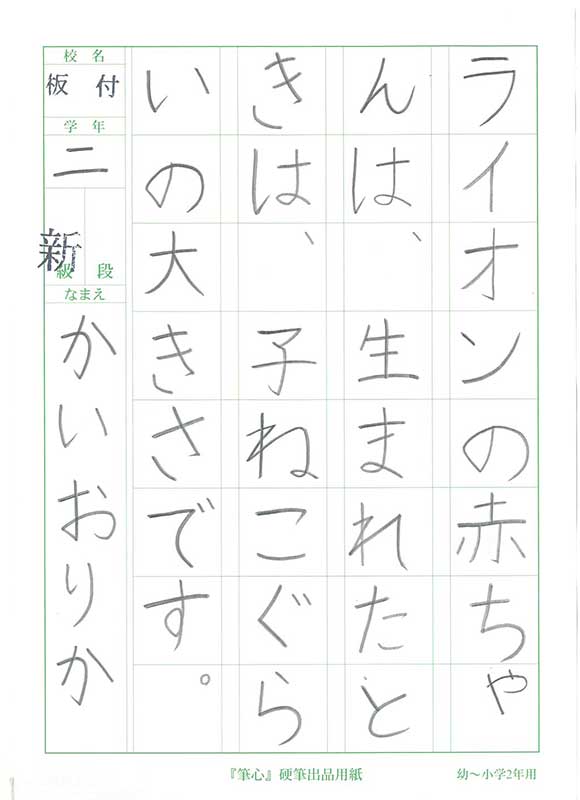 ライオンの赤ちゃ
んは、生まれたと
きは、子ねこぐら
いの大きさです。
校名
板付
学年
二
新
級 段
なまえ
かいおりか
『筆心』硬筆出品用紙
幼〜小学2年用